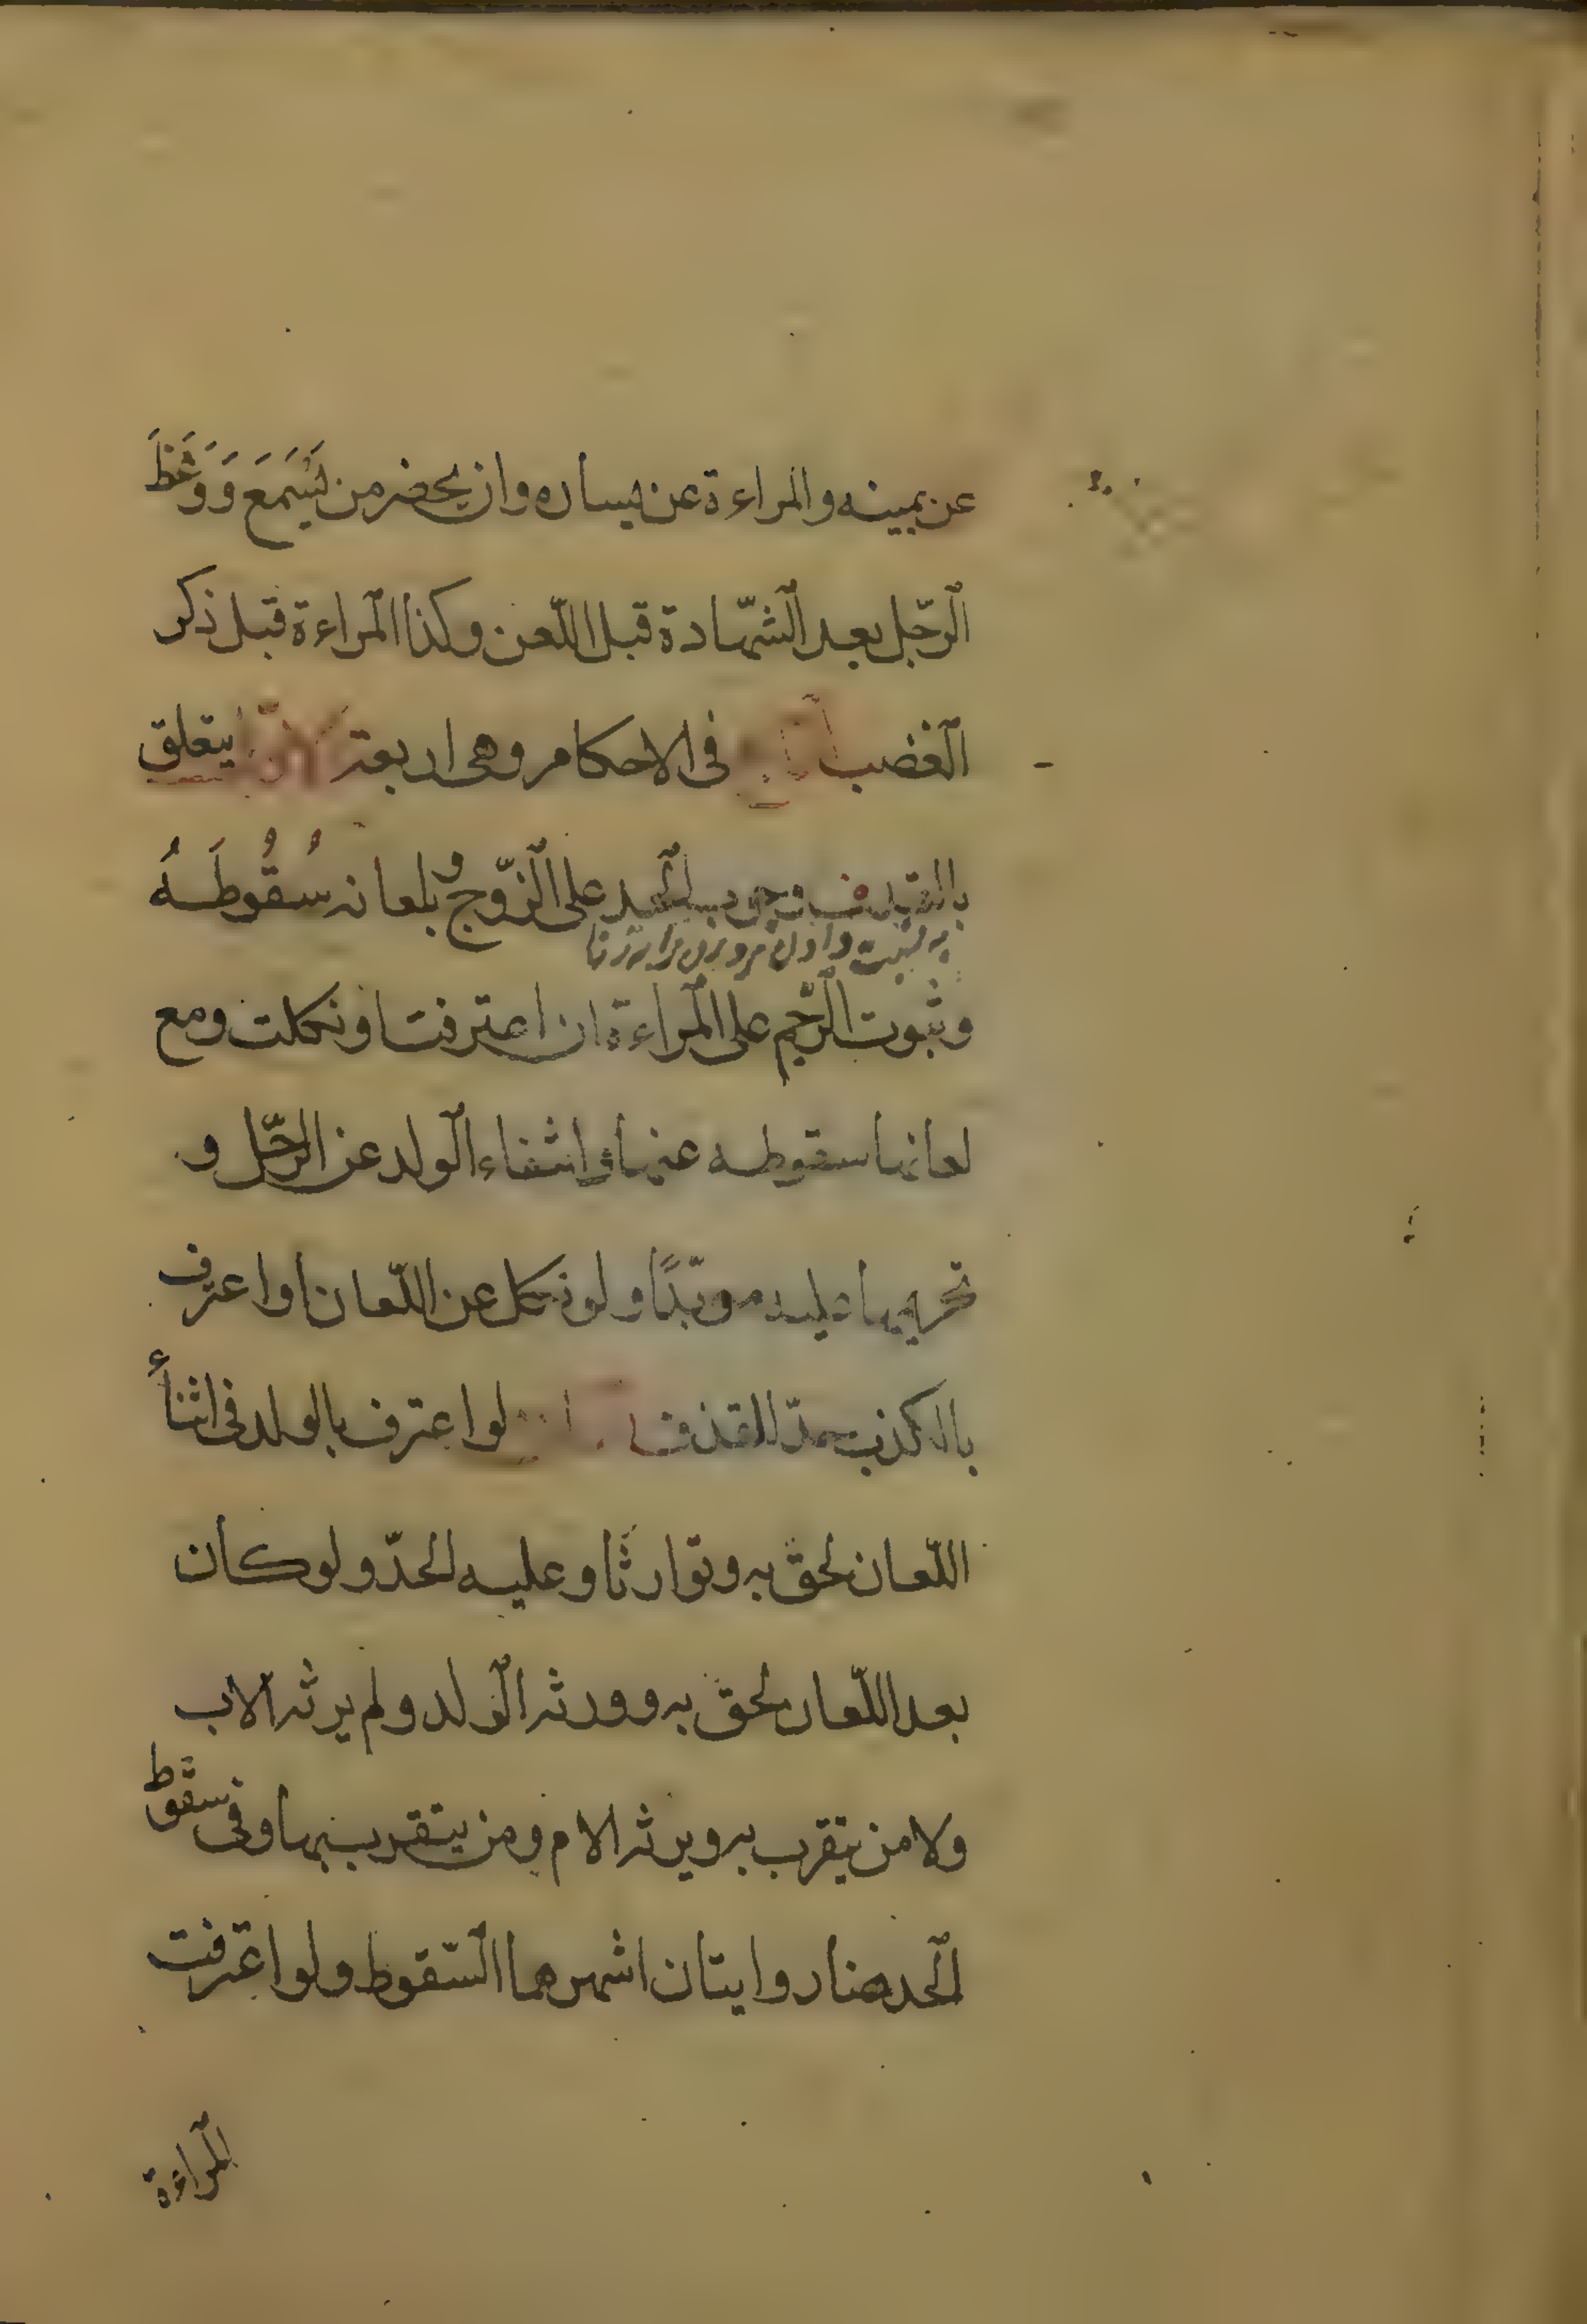 عن يمينه والمراءة عن يساره وان يحضر من يَسْمَعَ وَوَعَظَ
الرّجل بعد الشّهادة قبل اللّعن وكذا المراءة قبل ذكر
الغضب في الاحكام وهى اربعة يتعلق
بالقذف وجوب الحد على الزّوج و بلعانه سُقُوطَهُ
وثبوت الرّجم على المراءة ان اعترفت او نكلت ومع
لعانها سقوطه عنها وانتفاء الولد عن الرّجل و
تحريمها عليه موبّدًا ولو نكل عن اللّعان او اعترف
بالكذب حدّ للقذف لو اعترف بالولد في اثناء
اللّعان لحق به وتوارثا وعليه الحدّ ولو كان
بعد اللّعان لحق به وورثه الولد ولم يرثه الاب
ولا من يتقرب به ويرثه الام ومن يتقرب بها وفى سقوط
الحد هنا روايتان اشهرهما السّقوط ولو اعترفت
المراءة